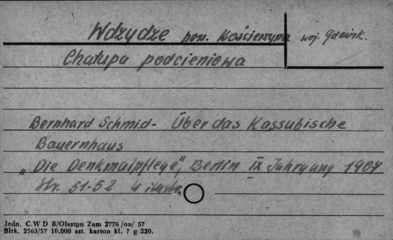 Wdzydze pow. Kościerzyna woj. Gdańsk.
Chałupa podcieniowa
Bernhard Schmid - Über das Kassubische
Bauernhaus
"Die Denkmalpflege", Berlin IX Jahrgang 1907
Str. 51-52 4 ilustr.
Jedn. C. W D B/Olsztyn Zam 2776/on/57
Bltk. 2563/57 10.000 szt. karton kl. 7 g 220.